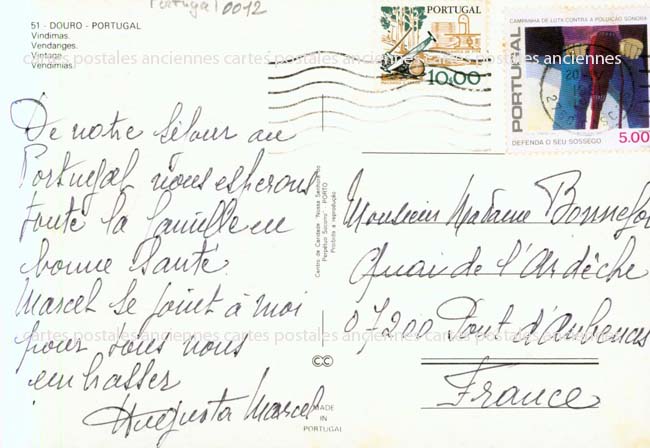 Portugal 0012
51 - DOURO - PORTUGAL
Vindimas.
Vendanges.
Vintage.
Vendimias.
cartes postales anciennes cartes postales anciennes cartes postales anciennes
PORTUGAL
10.00
CAMPANHA DE LUTA CONTRA A POLUIÇÃO SONORA
PORTUGAL
DEFENDA O SEU SOSSEGO
5.00
De notre séjour au
Portugal nous esperons
toute la famille en
bonne santé
Marcel se joint à moi
pour vous
embrasser
Augusta Marcel
Centro de Caridade "Nossa Senhora do
Perpétuo Socorro" - PORTO
Proibida a reprodução
Monsieur Madame Bonnefoi
Quai de l'Ardèche
07200 Pont d'Aubenas
France
cartes postales anciennes cartes postales anciennes cartes postales anciennes
CC
MADE
IN
PORTUGAL